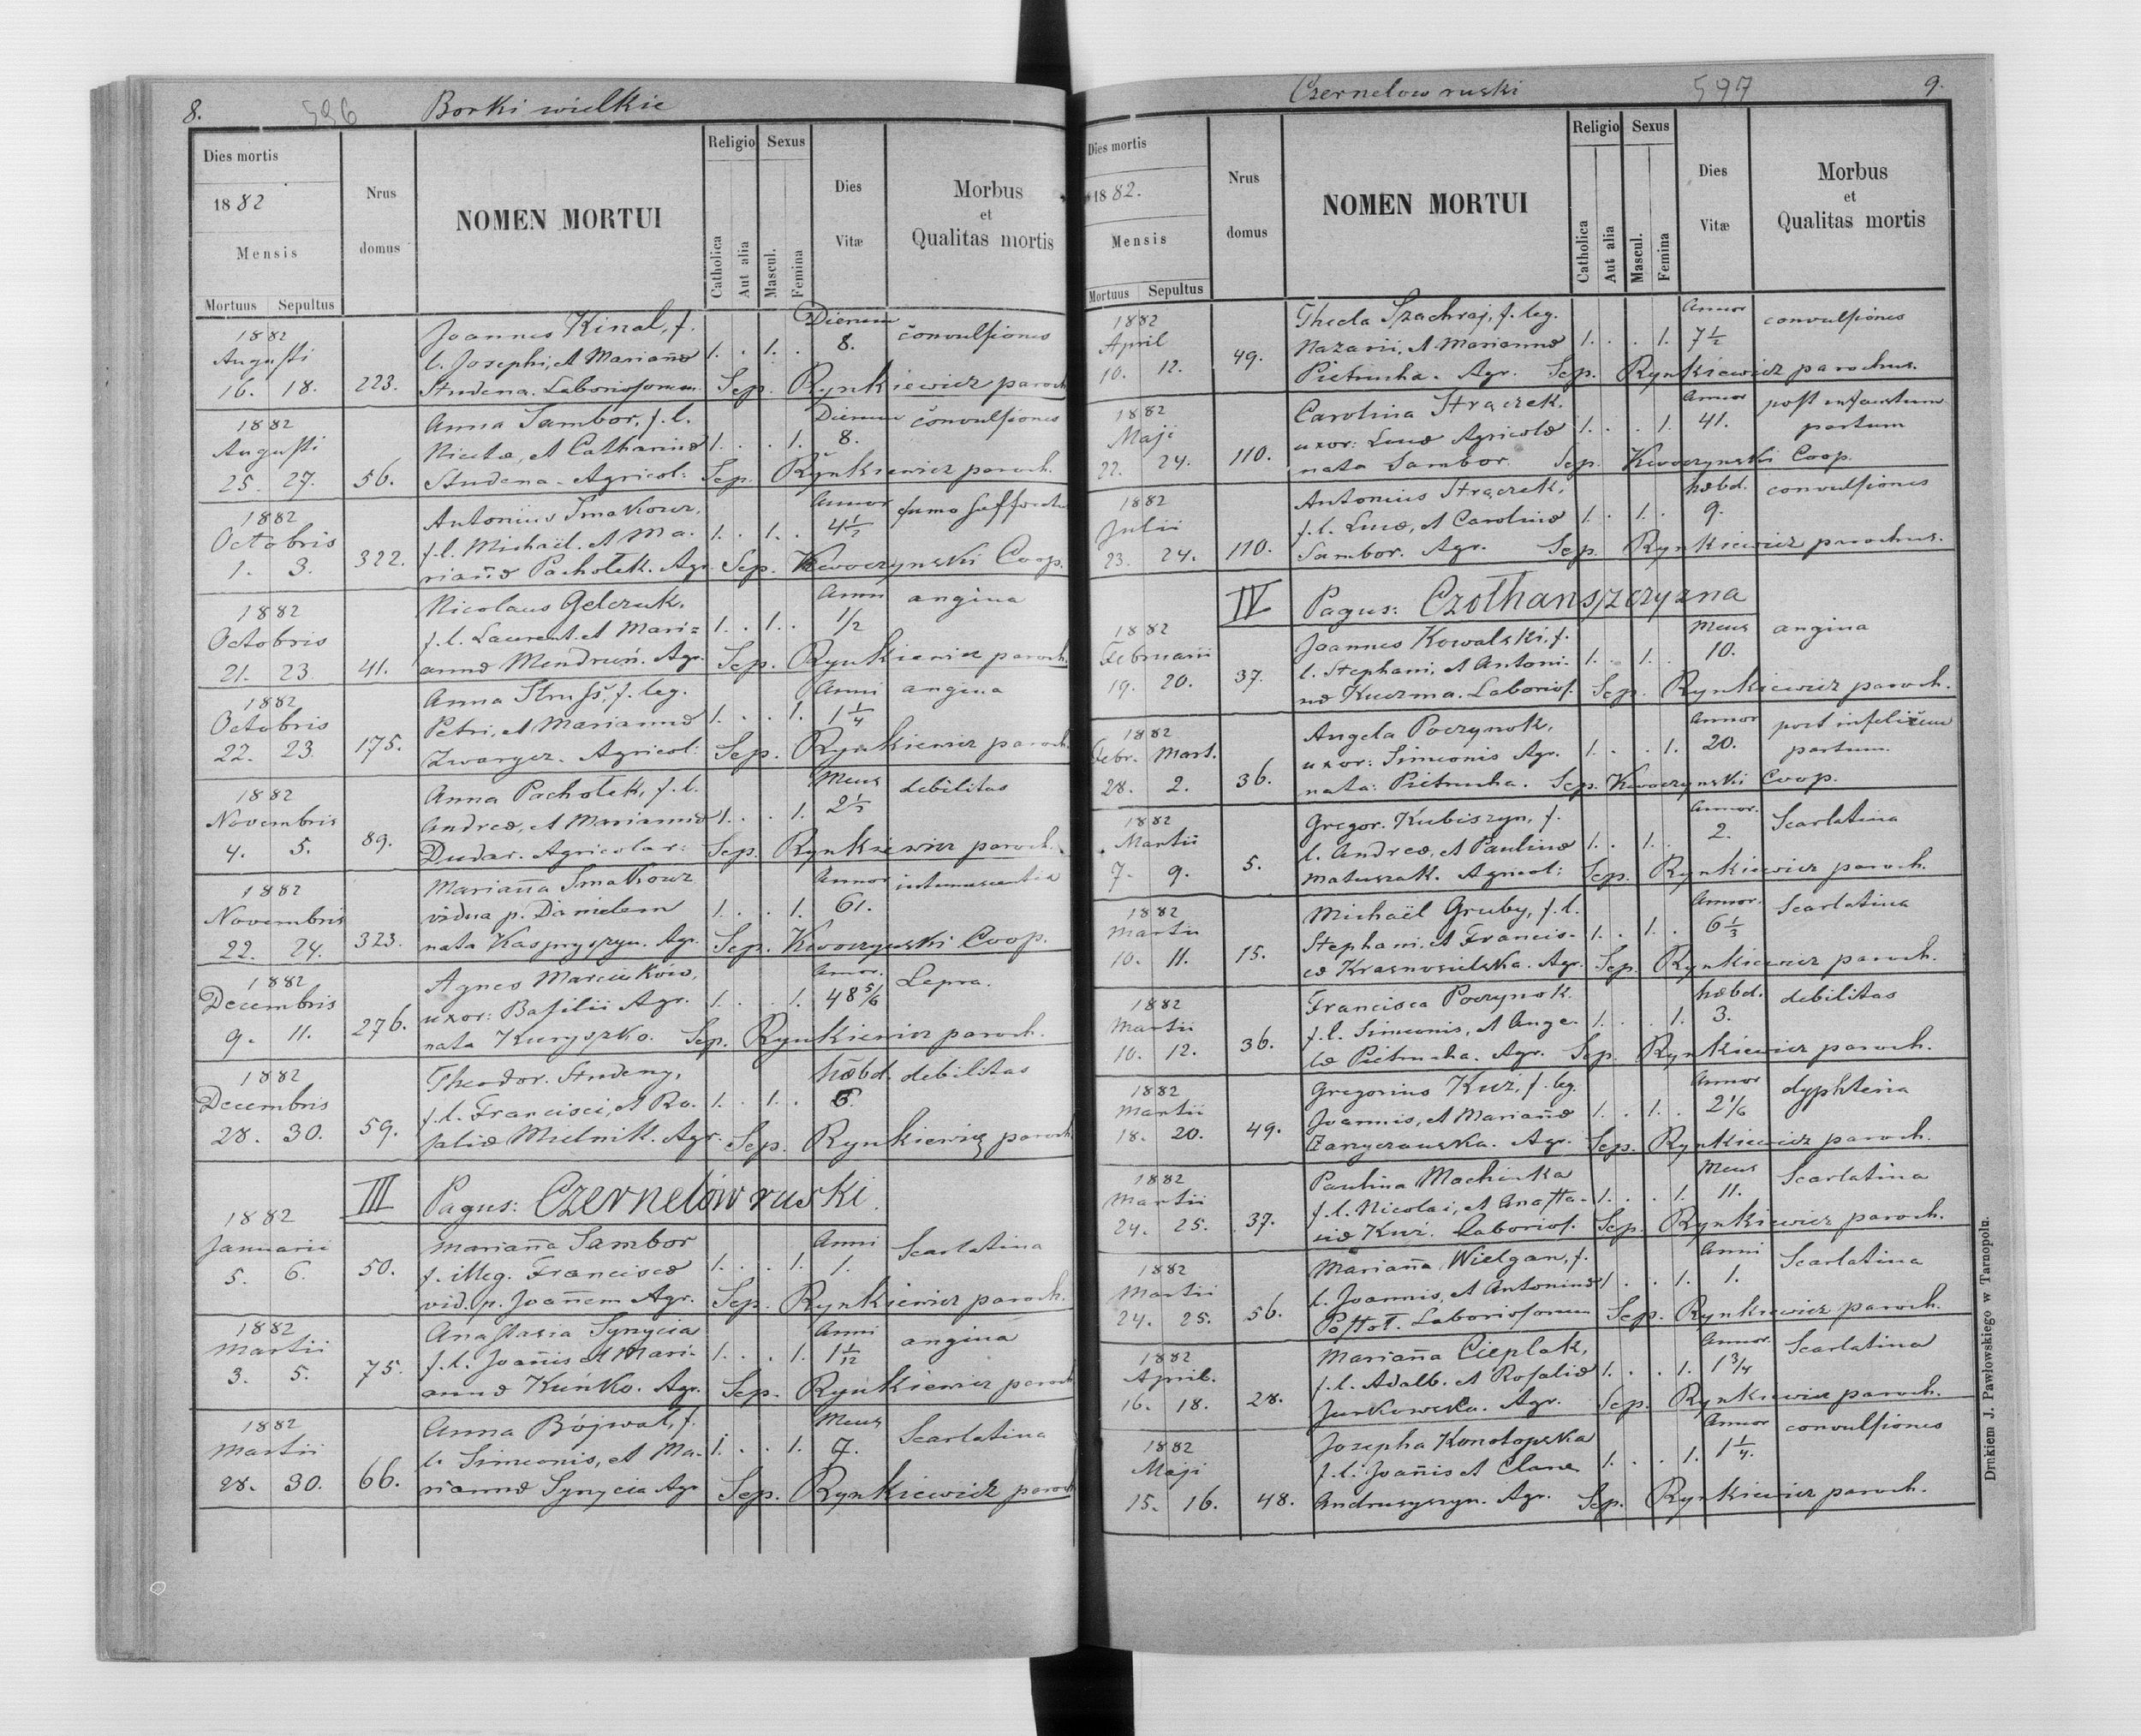 8. 596 Borki wielkie
Dies mortis
1882
Mensis
Mortuus Sepultus
Nrus
domus
NOMEN MORTUI
Religio
Catholica
Aut alia
Sexus
Mascul.
Femina
Dies
Vitæ
Morbus
et
Qualitas mortis
1882 Joannes Kinal, f. Dierum
Augusti l. Josephi, et Mariañæ 1. . 1. . 8. convulsiones
16. 18. 223. Studena. Laboriosorum. Sep. Rynkiewicz paroch.
1882 Anna Sambor, f. l. Dierum
Augusti Nicetæ, et Catharinæ 1. . . 1. 8. convulsiones
25. 27. 56. Studena. Agricol: Sep. Rynkiewicz paroch.
1882 Antonius Smakowz, Annor
Octobris f. l. Michaël. et Ma- 1. . 1. . 4½ fumo
1. 3. 322. riañæ Pachołek. Agr. Sep. Kwoczynski Coop.
1882 Nicolaus Gelczuk, Anni
Octobris f. l. Laurent. et Mari= 1. . 1. . 1/2 angina
21. 23. 41. annæ Mendruń. Agr. Sep. Rynkiewicz paroch.
1882 Anna f. leg. Anni
Octobris Petri, et Mariannæ 1. . . 1. 1¼ angina
22. 23. 175. Zwarycz. Agricol: Sep. Rynkiewicz paroch.
1882 Anna Pachołek, f. l. Mens
Novembris Andreæ, et Mariannæ 1. . . 1. 2½ debilitas
4. 5. 89. Dudar. Agricolar: Sep. Rynkiewicz paroch.
1882 Mariaña Smakowz Annor
Novembris vidua p. Danielem 1. . . 1. 61. intumescentia
22. 24. 323. nata Kaspryszyn. Agr. Sep. Kwoczynski Coop.
1882 Agnes Marcinków, Annor.
Decembris uxor: Basilii Agr. 1. . . 1. 48 5/6 Lepra.
9. 11. 276. nata Kuryszko. Sep. Rynkiewicz paroch.
1882 Theodor. Studeny, hæbd.
Decembris f. l. Francisci, et Ro- 1. . 1. . 6. debilitas
28. 30. 59. saliæ Mielnik. Agr. Sep. Rynkiewicz paroch.
III Pagus: Czernelów ruski.
1882 Mariaña Sambor Anni
Januarii f. illeg. Franciscæ 1. . . 1. 1. Scarlatina
5. 6. 50. vid. p. Joañem Agr. Sep. Rynkiewicz paroch.
1882 Anastasia Synycia Anni
Martii f. l. Joañis et Mari- 1. . . 1. 1 1/12 angina
3. 5. 75. annæ Kuńko. Agr. Sep. Rynkiewicz paroch
1882 Anna Bójwał, f. Mens
Martii l. Simeonis, et Ma- 1. . . 1. 7. Scarlatina
28. 30. 66. riannæ Synycia Agr Sep. Rynkiewicz paroch
Czernelow ruski 597 9.
Dies mortis
1882.
Mensis
Mortuus Sepultus
Nrus
domus
NOMEN MORTUI
Religio
Catholica
Aut alia
Sexus
Mascul.
Femina
Dies
Vitæ
Morbus
et
Qualitas mortis
1882 Thecla Szachraj, f. leg. Annor
April Nazarii, et Mariannæ 1. . . 1. 7½ convulsiones
10. 12. 49. Pietrucha. Agr. Sep. Rynkiewicz parochus.
1882 Carolina Strączek, Annor post infaustum
Maji uxor: Lucæ Agricolæ 1. . . 1. 41. partum
22. 24. 110. nata Sambor. Sep. Kwoczynski Coop.
1882 Antonius Strączek, hæbd. convulsiones
Julii f. l. Lucæ, et Carolinæ 1. . 1. . 9.
23. 24. 110. Sambor. Agr. Sep. Rynkiewicz parochus.
IV Pagus: Czołhanszczyzna
1882 Joannes Kowalski, f. Mens angina
Februarii l. Stephani, et Antoni- 1. . 1. . 10.
19. 20. 37. næ Kuczma. Laborios. Sep. Rynkiewicz paroch.
1882 Angela Poczynok, Annor post infelicem
Febr. Mart. uxor: Simeonis Agr. 1. . . 1. 20. partum
28. 2. 36. nata: Pietrucha. Sep. Kwoczynski Coop.
1882 Gregor. Kubiszyn, f. Annor.
Martii l. Andreæ, et Paulinæ 1. . 1. . 2. Scarlatina
7. 9. 5. Matuszak. Agricol: Sep. Rynkiewicz paroch.
1882 Michaël Gruby, f. l. Annor. Scarlatina
Martii Stephani, et Francis- 1. . 1. . 6⅓
10. 11. 15. cæ Krasnosielska. Agr. Sep. Rynkiewicz paroch.
1882 Francisca Poczynok. hæbd. debilitas
Martii f. l. Simeonis, et Ange- 1. . . 1. 3.
10. 12. 36. læ Pietrucha. Agr. Sep. Rynkiewicz paroch.
1882 Gregorius Kuź, f. leg. Annor dyphteria
Martii Joannis, et Mariañæ 1. . 1. . 2 1/6
18. 20. 49. Agr. Sep. Rynkiewicz paroch.
1882 Paulina Machinka Mens Scarlatina
Martii f. l. Nicolai, et Anasta- 1. . . 1. 11.
24. 25. 37. siæ Kuź. Laborios. Sep. Rynkiewicz paroch.
1882 Mariaña Wielgan, f. Anni Scarlatina
Martii l. Joannis, et Antoninæ 1. . . 1. 1.
24. 25. 56. Postoł. Laboriosorum Sep. Rynkiewicz paroch.
1882 Mariaña Cieplak, Annor. Scarlatina
April. f. l. Adalb. et Rosaliæ 1. . . 1. 1¾
16. 18. 28. Jurkowska. Agr. Sep. Rynkiewicz paroch.
1882 Josepha Konotopska Annor convulsiones
Maji f. l. Joañis et Claræ 1. . . 1. 1¼.
15. 16. 48. Andrusyszyn. Agr. Sep. Rynkiewicz paroch.
Drukiem J. Pawłowskiego w Tarnopolu.